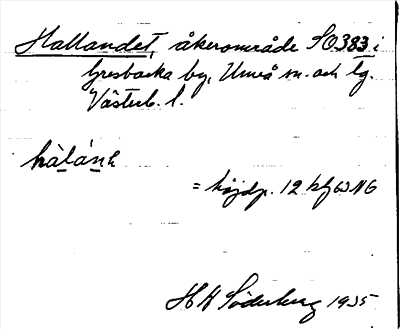 Hallandet, åkerområde SO383 i
Gresbacka by, Umeå sn. och tg.
Västerb. l.
hàlánh
= höjdp. 12 bf63NG
H H Söderberg 1935